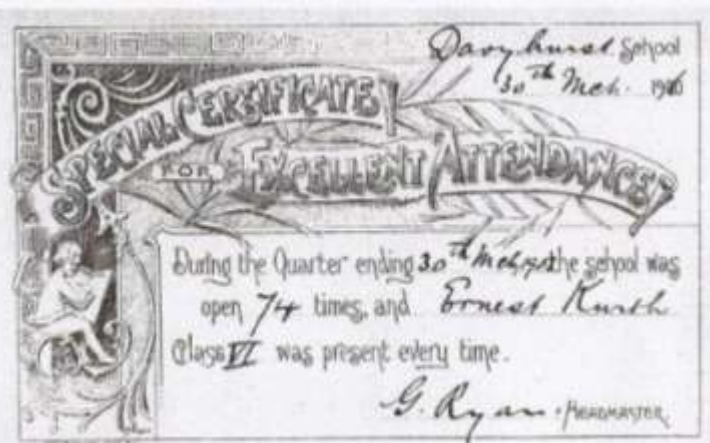 Davyhurst School
30th Mch. 1906
SPECIAL CERTIFICATE
FOR EXCELLENT ATTENDANCE
During the Quarter ending 30th Mch, the school was
open 74 times, and Ernest Kurth
Class VI was present every time.
G. Ryan. HEADMASTER.